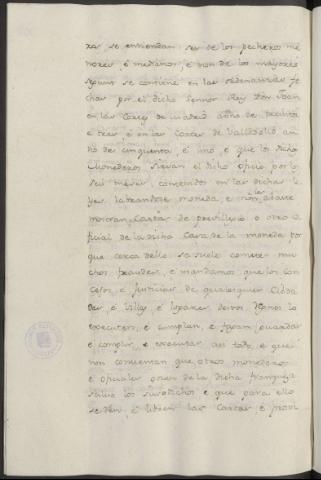 ros se entiendan ser de los pecheros me
nores, é medianos, é non de los mayores
segunt se contiene en las ordenanzas fe
chas por el dicho Sennor Rey Don Joan
en las Cortes de Madrid anno de treinta
é tres, é en las Cortes de Valladolid an
no de cinquenta é uno, é que los dichos
Monederos sirvan el dicho oficio por los
seis meses, contenidos en las dichas le
yes labrandose moneda, é non
mostran Cartas de previllegio o otro o
ficial de la dicha Casa de la moneda por
que cerca dello se suele cometer mu
chos fraudes, é mandamos que los con
cejos, é justicias de qualesquier Cibda
des, é Villas, é logares destos Regnos lo
executen, é cumplan, é fagan guardar
é complir, é executar asi todo, é que
non consientan que otros monederos
é oficiales gocen de la dicha franqueza
salvo los susodichos é que para ello
se den, é libren las Cartas, é provi